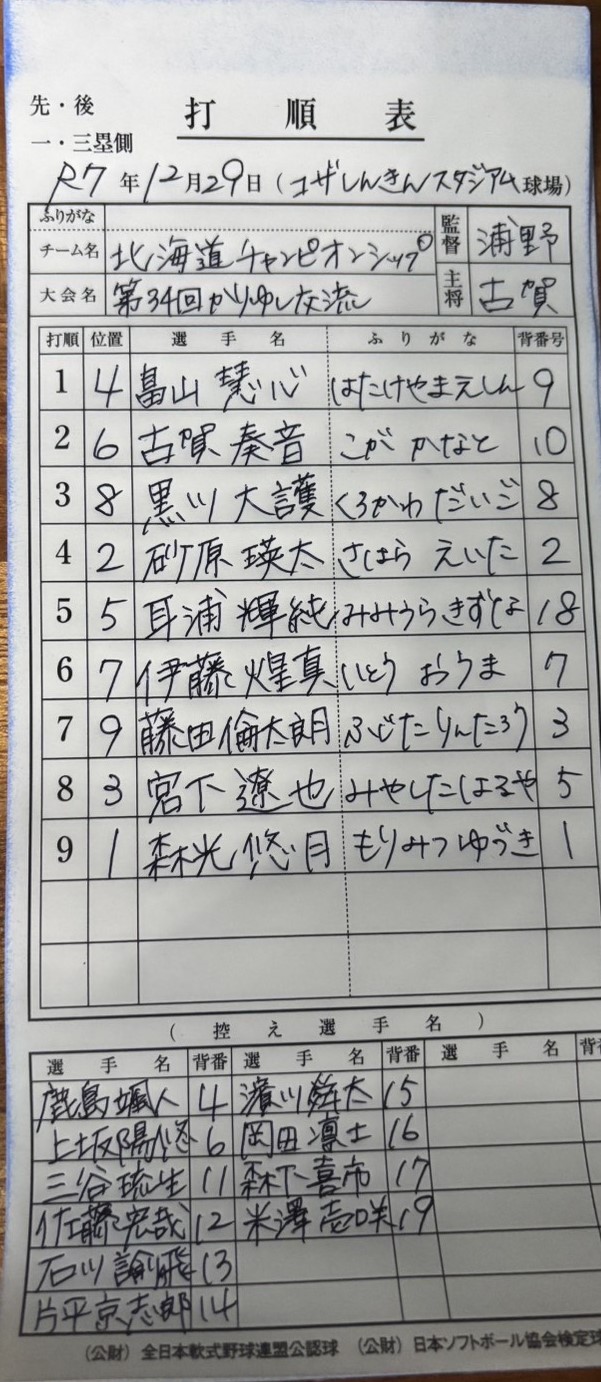 先・後
打順表
一・三塁側
R7年12月29日(コザしんきんスタジアム球場)
ふりがな
チーム名 北海道チャンピオンシップ 監督 浦野
大会名 第34回かりゆし交流 主将 古賀
打順 位置 選手名 ふりがな 背番号
1 4 畠山 慧心 はたけやまえしん 9
2 6 古賀 奏音 こが かなと 10
3 8 黒川 大護 くろかわ だいご 8
4 2 砂原 瑛太 さはら えいた 2
5 5 耳浦 輝純 みみうらきずな 18
6 7 伊藤 煌真 いとう おうま 7
7 9 藤田倫太朗 ふじたりんたろう 3
8 3 宮下 遼也 みやしたはるや 5
9 1 森光 悠月 もりみつゆづき 1
(控え選手名)
選手名 背番 選手名 背番 選手名 背
鹿島颯人 4 濱川舜太 15
上坂陽悠 6 岡田凛士 16
三谷琉生 11 森下喜市 17
佐藤宏哉 12 米澤壱咲 19
石川諭飛 13
片平京志郎 14
(公財)全日本軟式野球連盟公認球 (公財)日本ソフトボール協会検定球